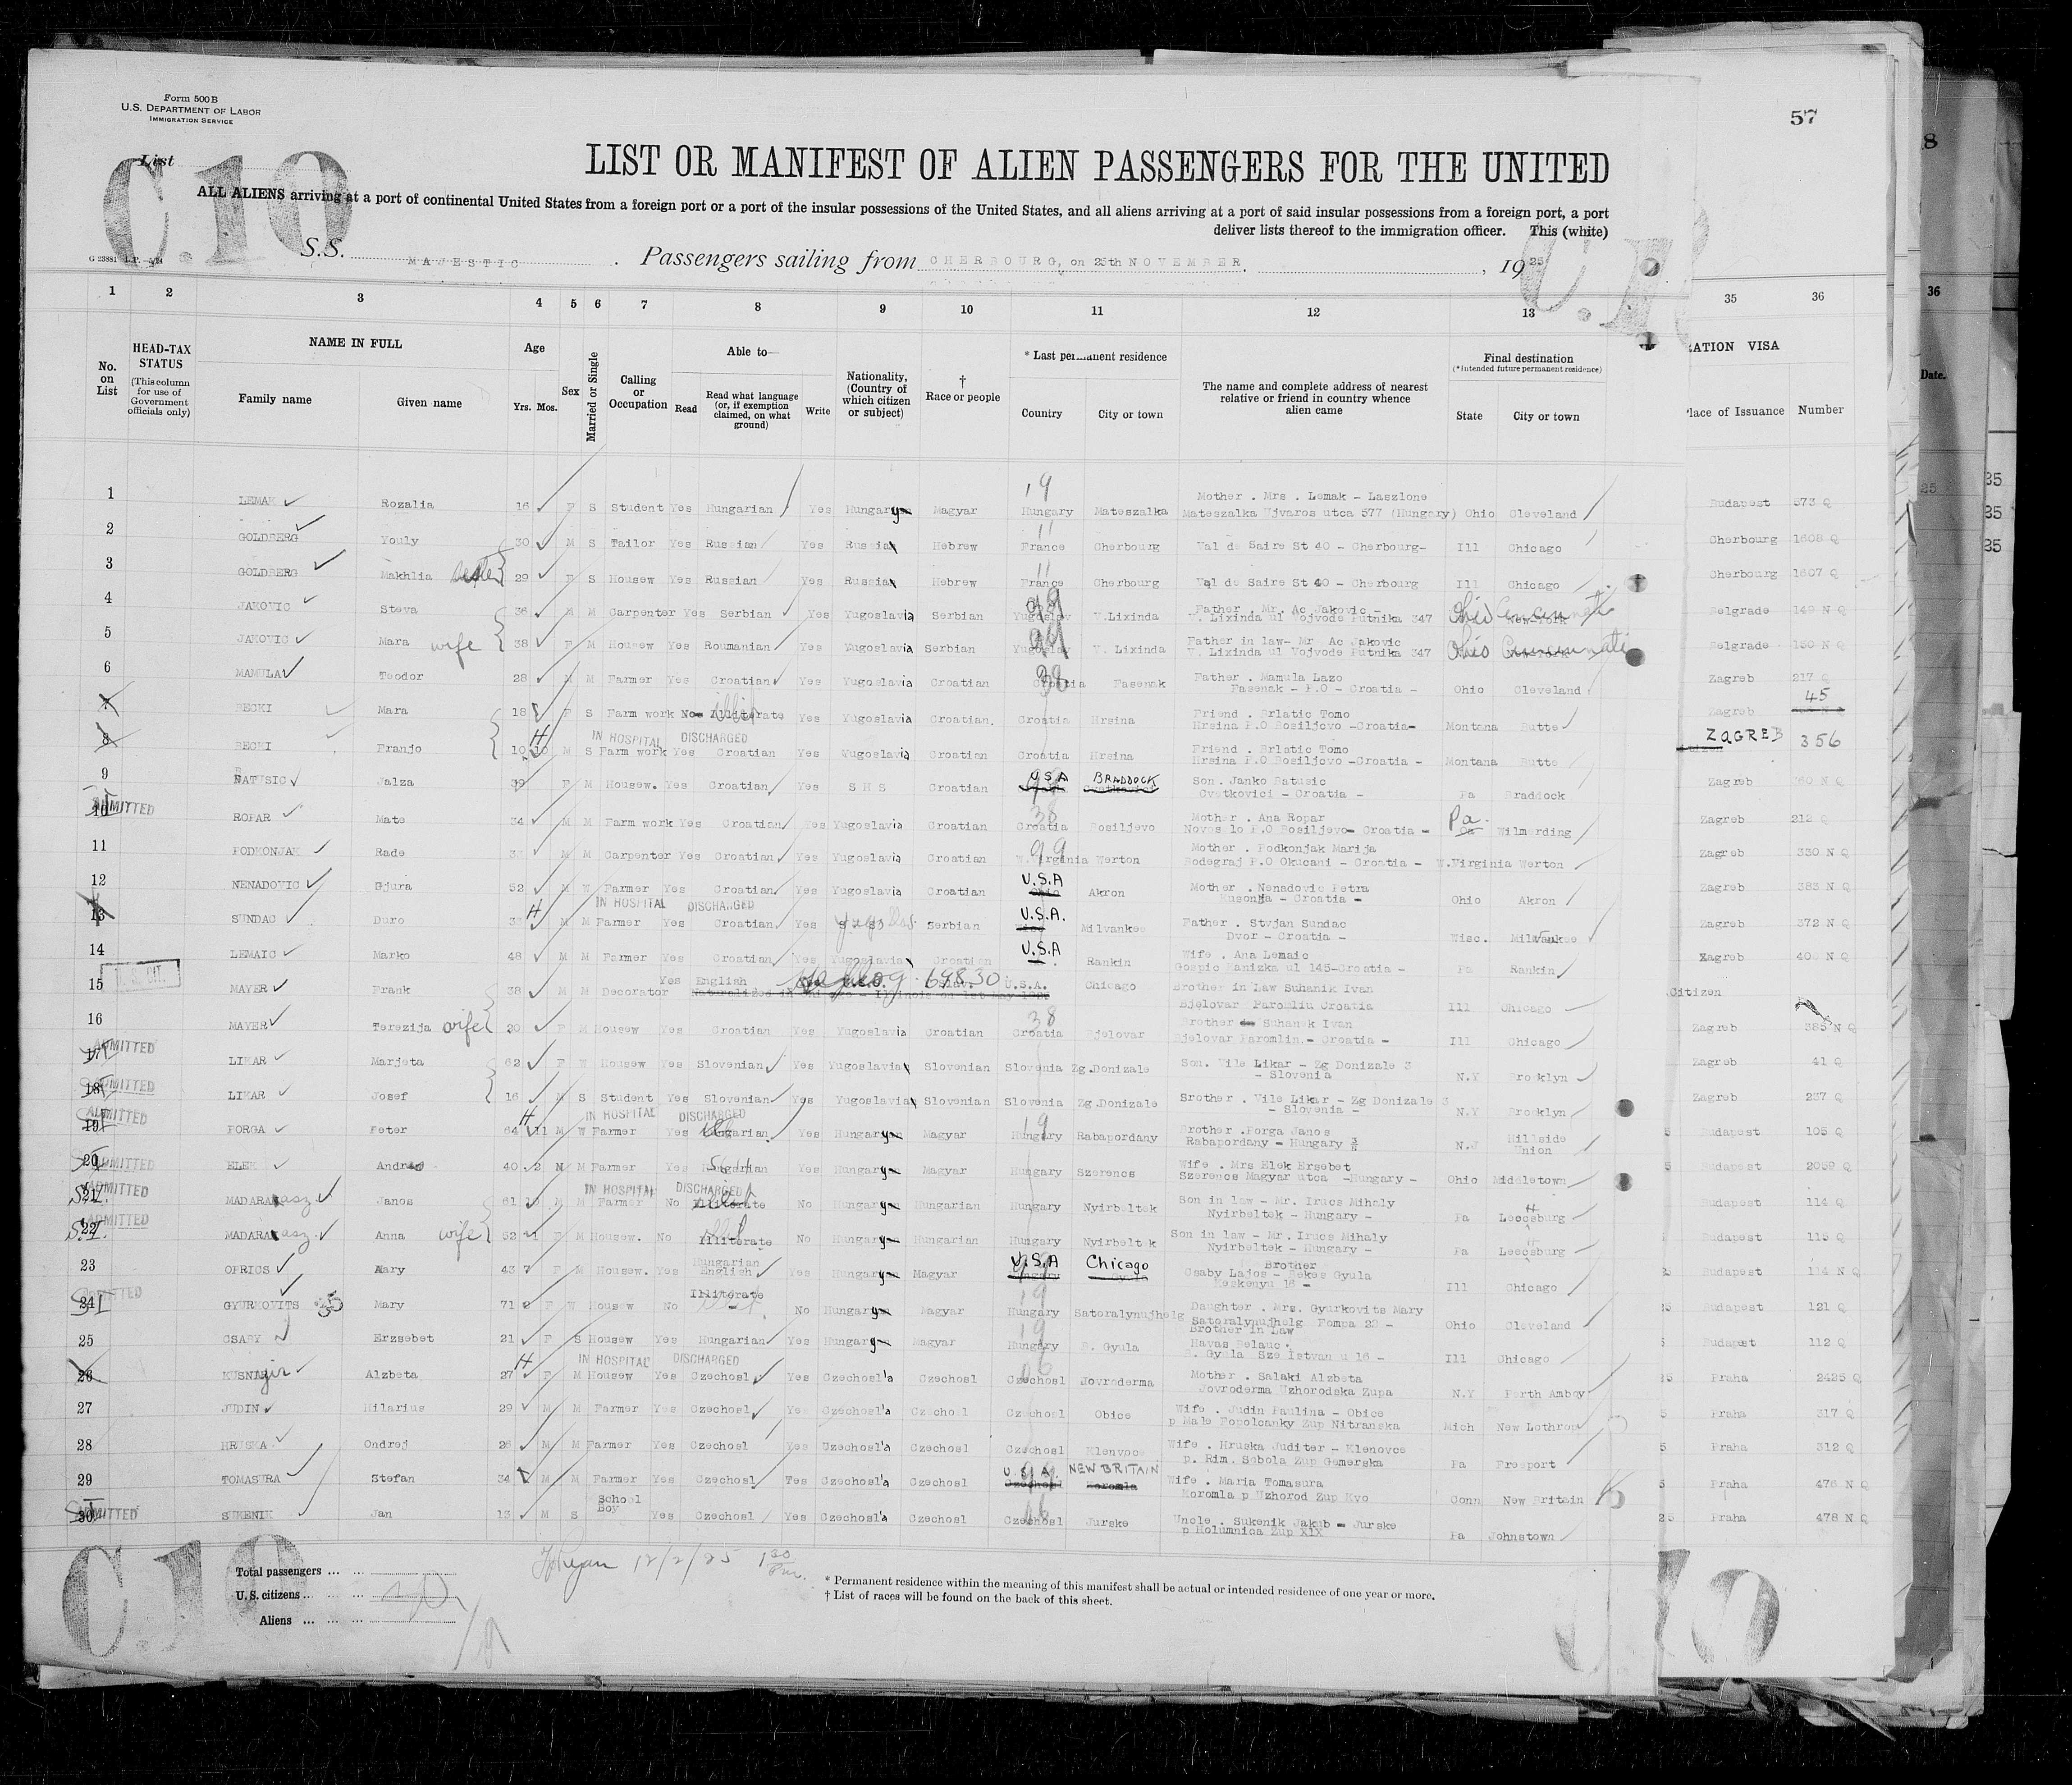 Form 500 B
U.S. DEPARTMENT OF LABOR
IMMIGRATION SERVICE
57
List
C.10
LIST OR MANIFEST OF ALIEN PASSENGERS FOR THE UNITED
ALL ALIENS arriving at a port of continental United States from a foreign port or a port of the insular possessions of the United States, and all aliens arriving at a port of said insular possessions from a foreign port, a port
deliver lists thereof to the immigration officer. This (white)
S.S. MAJESTIC . Passengers sailing from CHERBOURG, on 25th NOVEMBER. , 1925
1 2 3 4 5 6 7 8 9 10 11 12 13 35 36
No. on List
HEAD-TAX STATUS (This column for use of Government officials only)
NAME IN FULL
Family name Given name
Age Yrs. Mos.
Sex
Married or Single
Calling or Occupation
Able to—
Read Read what language (or, if exemption claimed, on what ground) Write
Nationality, (Country of which citizen or subject)
† Race or people
* Last permanent residence
Country City or town
The name and complete address of nearest relative or friend in country whence alien came
Final destination (*Intended future permanent residence)
State City or town
RATION VISA
Place of Issuance Number
Date.
1 LEMAK Rozalia 16 F S Student Yes Hungarian Yes Hungary Magyar Hungary Mateszalka Mother . Mrs . Lemak - Laszlone Mateszalka Ujvaros utca 577 (Hungary) Ohio Cleveland Budapest 573 Q
2 GOLDBERG Youly 30 M S Tailor Yes Russian Yes Russia Hebrew France Cherbourg Val de Saire St 40 - Cherbourg- Ill Chicago Cherbourg 1608 Q
3 GOLDBERG Makhlia 29 F S Housew Yes Russian Yes Russia Hebrew France Cherbourg Val de Saire St 40 - Cherbourg Ill Chicago Cherbourg 1607 Q
4 JAKOVIC Steva 36 M M Carpenter Yes Serbian Yes Yugoslavia Serbian Yugoslav V.Lixinda Father . Mr. Ac Jakovic - V. Lixinda ul Vojvode Putnika 347 Ohio Cincinnati Belgrade 149 N Q
5 JAKOVIC Mara wife 38 F M Housew Yes Roumanian Yes Yugoslavia Serbian Yugoslav V. Lixinda Father in law- Mr Ac Jakovic V. Lixinda ul Vojvode Putnika 347 Ohio Cincinnati Belgrade 150 N Q
6 MAMULA Teodor 28 M M Farmer Yes Croatian Yes Yugoslavia Croatian Croatia Pasenak Father . Mamula Lazo Pasenak - P.O - Croatia - Ohio Cleveland Zagreb 217 Q
7 BECKI Mara 18 F S Farm work No Illiterate Yes Yugoslavia Croatian. Croatia Hrsina Friend . Brlatic Tomo Hrsina P.O Bosiljevo -Croatia- Montana Butte Zagreb 45
8 BECKI Franjo 10 10 M S Farm work Yes Croatian Yes Yugoslavia Croatian Croatia Hrsina Friend . Brlatic Tomo Hrsina P.O Bosiljevo -Croatia - Montana Butte ZAGREB 356
H IN HOSPITAL DISCHARGED
9 BATUSIC Jalza 39 F M Housew. Yes Croatian Yes S H S Croatian U S A BRADDOCK Son. Janko Batusic Cvetkovici - Croatia - Pa Braddock Zagreb 360 N Q
ADMITTED
10 ROPAR Mate 34 M M Farm work Yes Croatian Yes Yugoslavia Croatian Croatia Bosiljevo Mother . Ana Ropar Novos lo P.O Bosiljevo- Croatia - Pa. Wilmerding Zagreb 212 Q
11 PODKONJAK Rade M M Carpenter Yes Croatian Yes Yugoslavia Croatian W.Virginia Werton Mother . Podkonjak Marija Bodegraj P.O Okucani - Croatia - W.Virginia Werton Zagreb 330 N Q
12 NENADOVIC Gjura 52 M W Farmer Yes Croatian Yes Yugoslavia Croatian U.S.A Akron Mother . Nenadovic Petra Kusonja - Croatia - Ohio Akron Zagreb 383 N Q
H IN HOSPITAL DISCHARGED
13 SUNDAC Duro M M Farmer Yes Croatian Yes Serbian U.S.A. Milvankee Father . Stvjan Sundac Dvor - Croatia - Wisc. Milvankee Zagreb 372 N Q
14 LEMAIC Marko 48 M M Farmer Yes Croatian Yes Yugoslavia Croatian U.S.A Rankin Wife . Ana Lemaic Gospic Kanizka ul 145-Croatia - Pa Rankin Zagreb
U.S. CIT.
15 MAYER Frank 38 M M Decorator Yes English 69830 U.S.A. Chicago Brother in Law Suhanik Ivan Bjelovar Paromliu Croatia Ill Chicago Citizen
16 MAYER Terezija wife 20 F M Housew Yes Croatian Yes Yugoslavia Croatian Croatia Bjelovar Brother Suhanek Ivan Bjelovar Paromlin - Croatia - Ill Chicago Zagreb 385 N Q
ADMITTED
17 LIKAR Marjeta 62 F W Housew Yes Slovenian Yes Yugoslavia Slovenian Slovenia Zg.Donizale Son. Vile Likar - Zg Donizale 3 - Slovenia N.Y Brooklyn Zagreb 41 Q
ADMITTED
18 LIKAR Josef 16 M S Student Yes Slovenian Yes Yugoslavia Slovenian Slovenia Zg.Donizale Brother . Vile Likar - Zg Donizale 3 - Slovenia - N.Y Brooklyn Zagreb 237 Q
ADMITTED H IN HOSPITAL DISCHARGED
19 PORGA Peter 64 11 M W Farmer Yes Hungarian Yes Hungary Magyar Hungary Rabapordany Brother .Porga Janos Rabapordany - Hungary N.J Hillside Union Budapest 105 Q
ADMITTED
20 ELEK Andras 40 2 M M Farmer Yes Hungarian Yes Hungary Magyar Hungary Szerencs Wife . Mrs Elek Ersebet Szerencs Magyar utca -Hungary - Ohio Middletown Budapest 2059 Q
ADMITTED IN HOSPITAL DISCHARGED
21 MADARASZ Janos 61 10 M M Farmer No Illiterate No Hungary Hungarian Hungary Nyirbeltek Son in law - Mr. Irucs Mihaly Nyirbeltek - Hungary - Pa Leecsburg Budapest 114 Q
ADMITTED
22 MADARASZ Anna wife 52 1 F M Housew. No Illiterate No Hungary Hungarian Hungary Nyirbelt k Son in law - Mr. Irucs Mihaly Nyirbeltek - Hungary - Pa Leecsburg Budapest 115 Q
23 OPRICS Mary 43 7 F M Housew. Yes Hungarian English Yes Hungary Magyar U.S.A Chicago Brother Csaby Lajos - Bekes Gyula Keskenyu 16 - Ill Chicago Budapest 114 N Q
ADMITTED
24 GYURKOVITS Mary 71 2 F W Housew No Illiterate No Hungary Magyar Hungary Satoralynujhelg Daughter . Mrs. Gyurkovits Mary Satoralynujhelg Pompa 29 - Ohio Cleveland Budapest 121 Q
25 CSABY Erzsebet 21 F S Housew Yes Hungarian Yes Hungary Magyar Hungary B. Gyula Brother in Law Havas Belauc . B. Gyula Sze Istvan u 16 - Ill Chicago Budapest 112 Q
H IN HOSPITAL DISCHARGED
26 Alzbeta 27 F M Housew Yes Czechosl Yes Czechosl'a Czechosl Czechosl Jovroderma Mother . Salaki Alzbeta Jovroderma Uzhorodska Zupa N.Y Perth Amboy Praha 2425 Q
27 JUDIN Hilarius 29 M M Farmer Yes Czechosl Yes Czechosl'a Czechosl Czechosl Obice Wife . Judin Paulina - Obice p Male Popolcanky Zup Nitranska Mich New Lothrop Praha 317 Q
28 HRUSKA Ondrej 26 M M Farmer Yes Czechosl Yes Czechosl'a Czechosl Czechosl Klenvoce Wife . Hruska Juditer - Klenovce p. Rim. Sobola Zup Gemerska Pa Freeport Praha 312 Q
29 TOMASURA Stefan 34 M M Farmer Yes Czechosl Yes Czechosl'a Czechosl U.S.A. NEW BRITAIN Wife . Maria Tomasura Koromla p Uzhorod Zup Kvo Conn New Britain Praha 476 N Q
ADMITTED
30 SUKENIK Jan 13 M S School Boy Yes Czechosl Yes Czechosl'a Czechosl Czechosl Jurske Uncle . Sukenik Jakub - Jurske p Holumnica Zup XIX Pa Johnstown Praha 478 N Q
12/2/25 1 30 Pm.
C.10
Total passengers ... ...
U. S. citizens ... ... ...
Aliens ... ... ...
* Permanent residence within the meaning of this manifest shall be actual or intended residence of one year or more.
† List of races will be found on the back of this sheet.